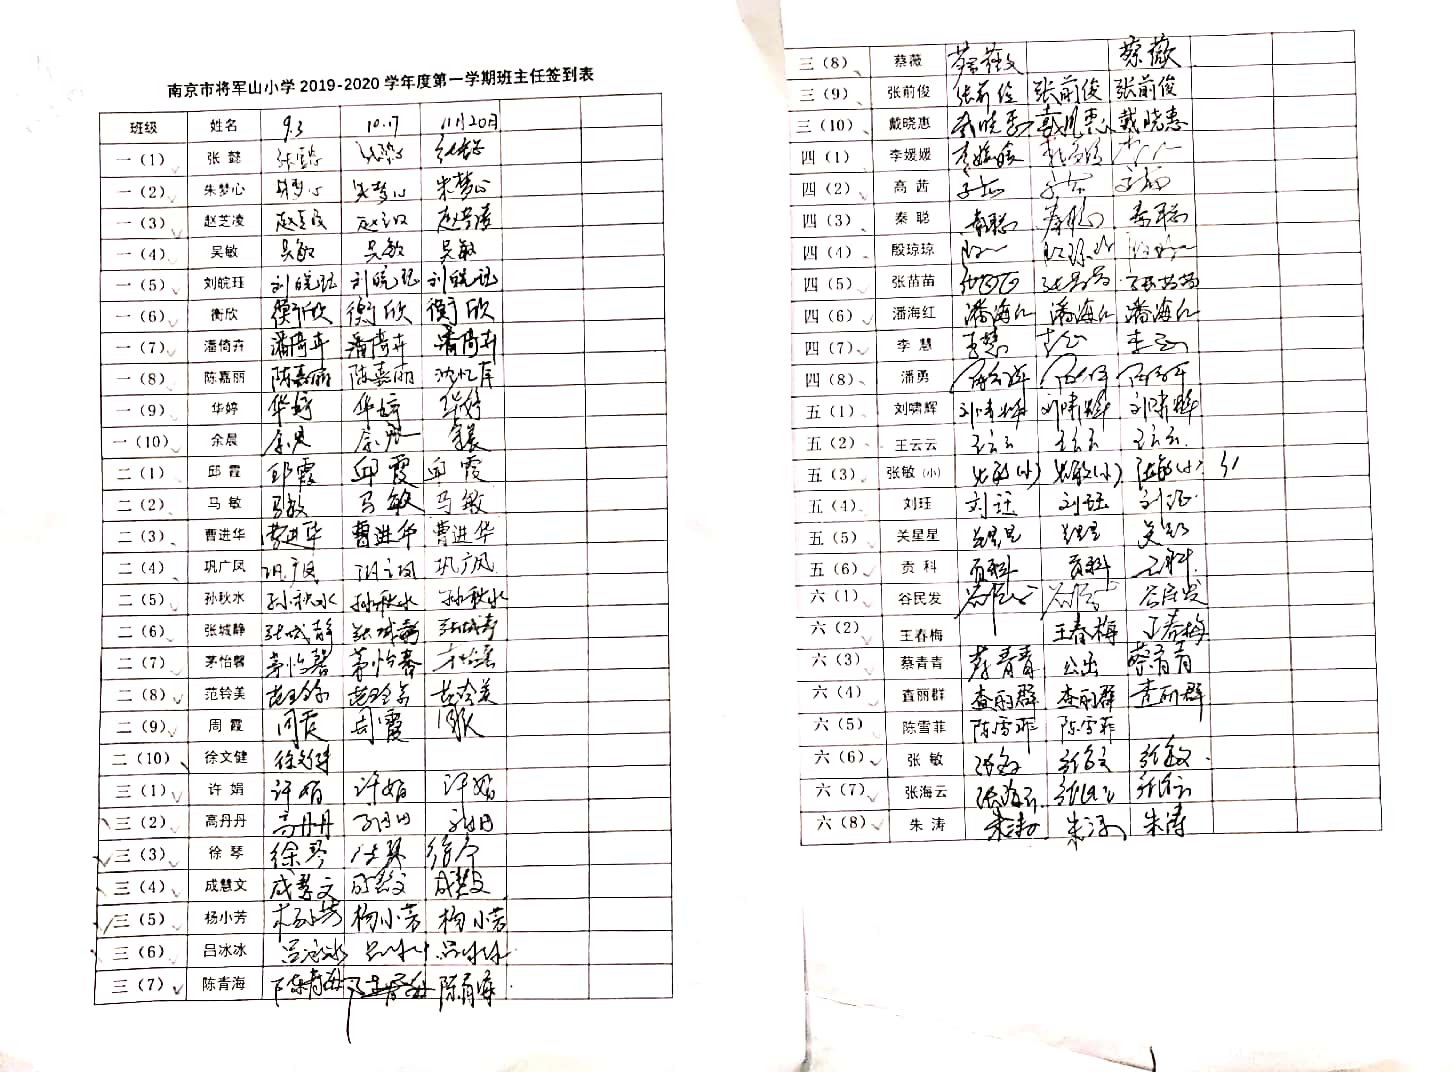 南京市将军山小学 2019-2020 学年度第一学期班主任签到表
班级 姓名 9.3 10.17 11月20日
一（1） 张懿 张懿 张懿 张懿
一（2） 朱梦心 朱梦心 朱梦心 朱梦心
一（3） 赵芝凌 赵芝凌 赵芝凌 赵芝凌
一（4） 吴敏 吴敏 吴敏 吴敏
一（5） 刘皖珏 刘皖珏 刘皖珏 刘皖珏
一（6） 衡欣 衡欣 衡欣 衡欣
一（7） 潘倚卉 潘倚卉 潘倚卉 潘倚卉
一（8） 陈嘉丽 陈嘉丽 陈嘉丽
一（9） 华婷 华婷 华婷 华婷
一（10） 余晨 余晨 余晨 余晨
二（1） 邱霞 邱霞 邱霞 邱霞
二（2） 马敏 马敏 马敏 马敏
二（3） 曹进华 曹进华 曹进华 曹进华
二（4） 巩广凤 巩广凤 巩广凤 巩广凤
二（5） 孙秋水 孙秋水 孙秋水 孙秋水
二（6） 张城静 张城静 张城静 张城静
二（7） 茅怡馨 茅怡馨 茅怡馨
二（8） 范铃美
二（9） 周霞 周霞 周霞 周霞
二（10） 徐文健 徐文健
三（1） 许娟 许娟 许娟 许娟
三（2） 高丹丹 高丹丹 高丹丹 高丹丹
三（3） 徐琴 徐琴 徐琴 徐琴
三（4） 成慧文 成慧文 成慧文 成慧文
三（5） 杨小芳 杨小芳 杨小芳 杨小芳
三（6） 吕冰冰 吕冰冰 吕冰冰 吕冰冰
三（7） 陈青海 陈青海 陈青海 陈青海
三（8） 蔡薇 蔡薇 蔡薇
三（9） 张前俊 张前俊 张前俊 张前俊
三（10） 戴晓惠 戴晓惠 戴晓惠 戴晓惠
四（1） 李媛媛 李媛媛 李媛媛
四（2） 高茜
四（3） 秦聪 秦聪 秦聪 秦聪
四（4） 殷琼琼
四（5） 张苗苗 张苗苗 张苗苗 张苗苗
四（6） 潘海红 潘海红 潘海红 潘海红
四（7） 李慧 李慧
四（8） 潘勇
五（1） 刘啸辉 刘啸辉 刘啸辉 刘啸辉
五（2） 王云云 王云云 王云云 王云云
五（3） 张敏（小） 张敏(小) 张敏(小) 张敏(小)
五（4） 刘珏 刘珏 刘珏 刘珏
五（5） 关星星 关星星 关星星
五（6） 贡科 贡科 贡科 贡科
六（1） 谷民发 谷民发
六（2） 王春梅 王春梅 王春梅
六（3） 蔡青青 蔡青青 公出 蔡青青
六（4） 查丽群 查丽群 查丽群 查丽群
六（5） 陈雪菲 陈雪菲 陈雪菲
六（6） 张敏 张敏 张敏 张敏
六（7） 张海云 张海云 张海云 张海云
六（8） 朱涛 朱涛 朱涛 朱涛